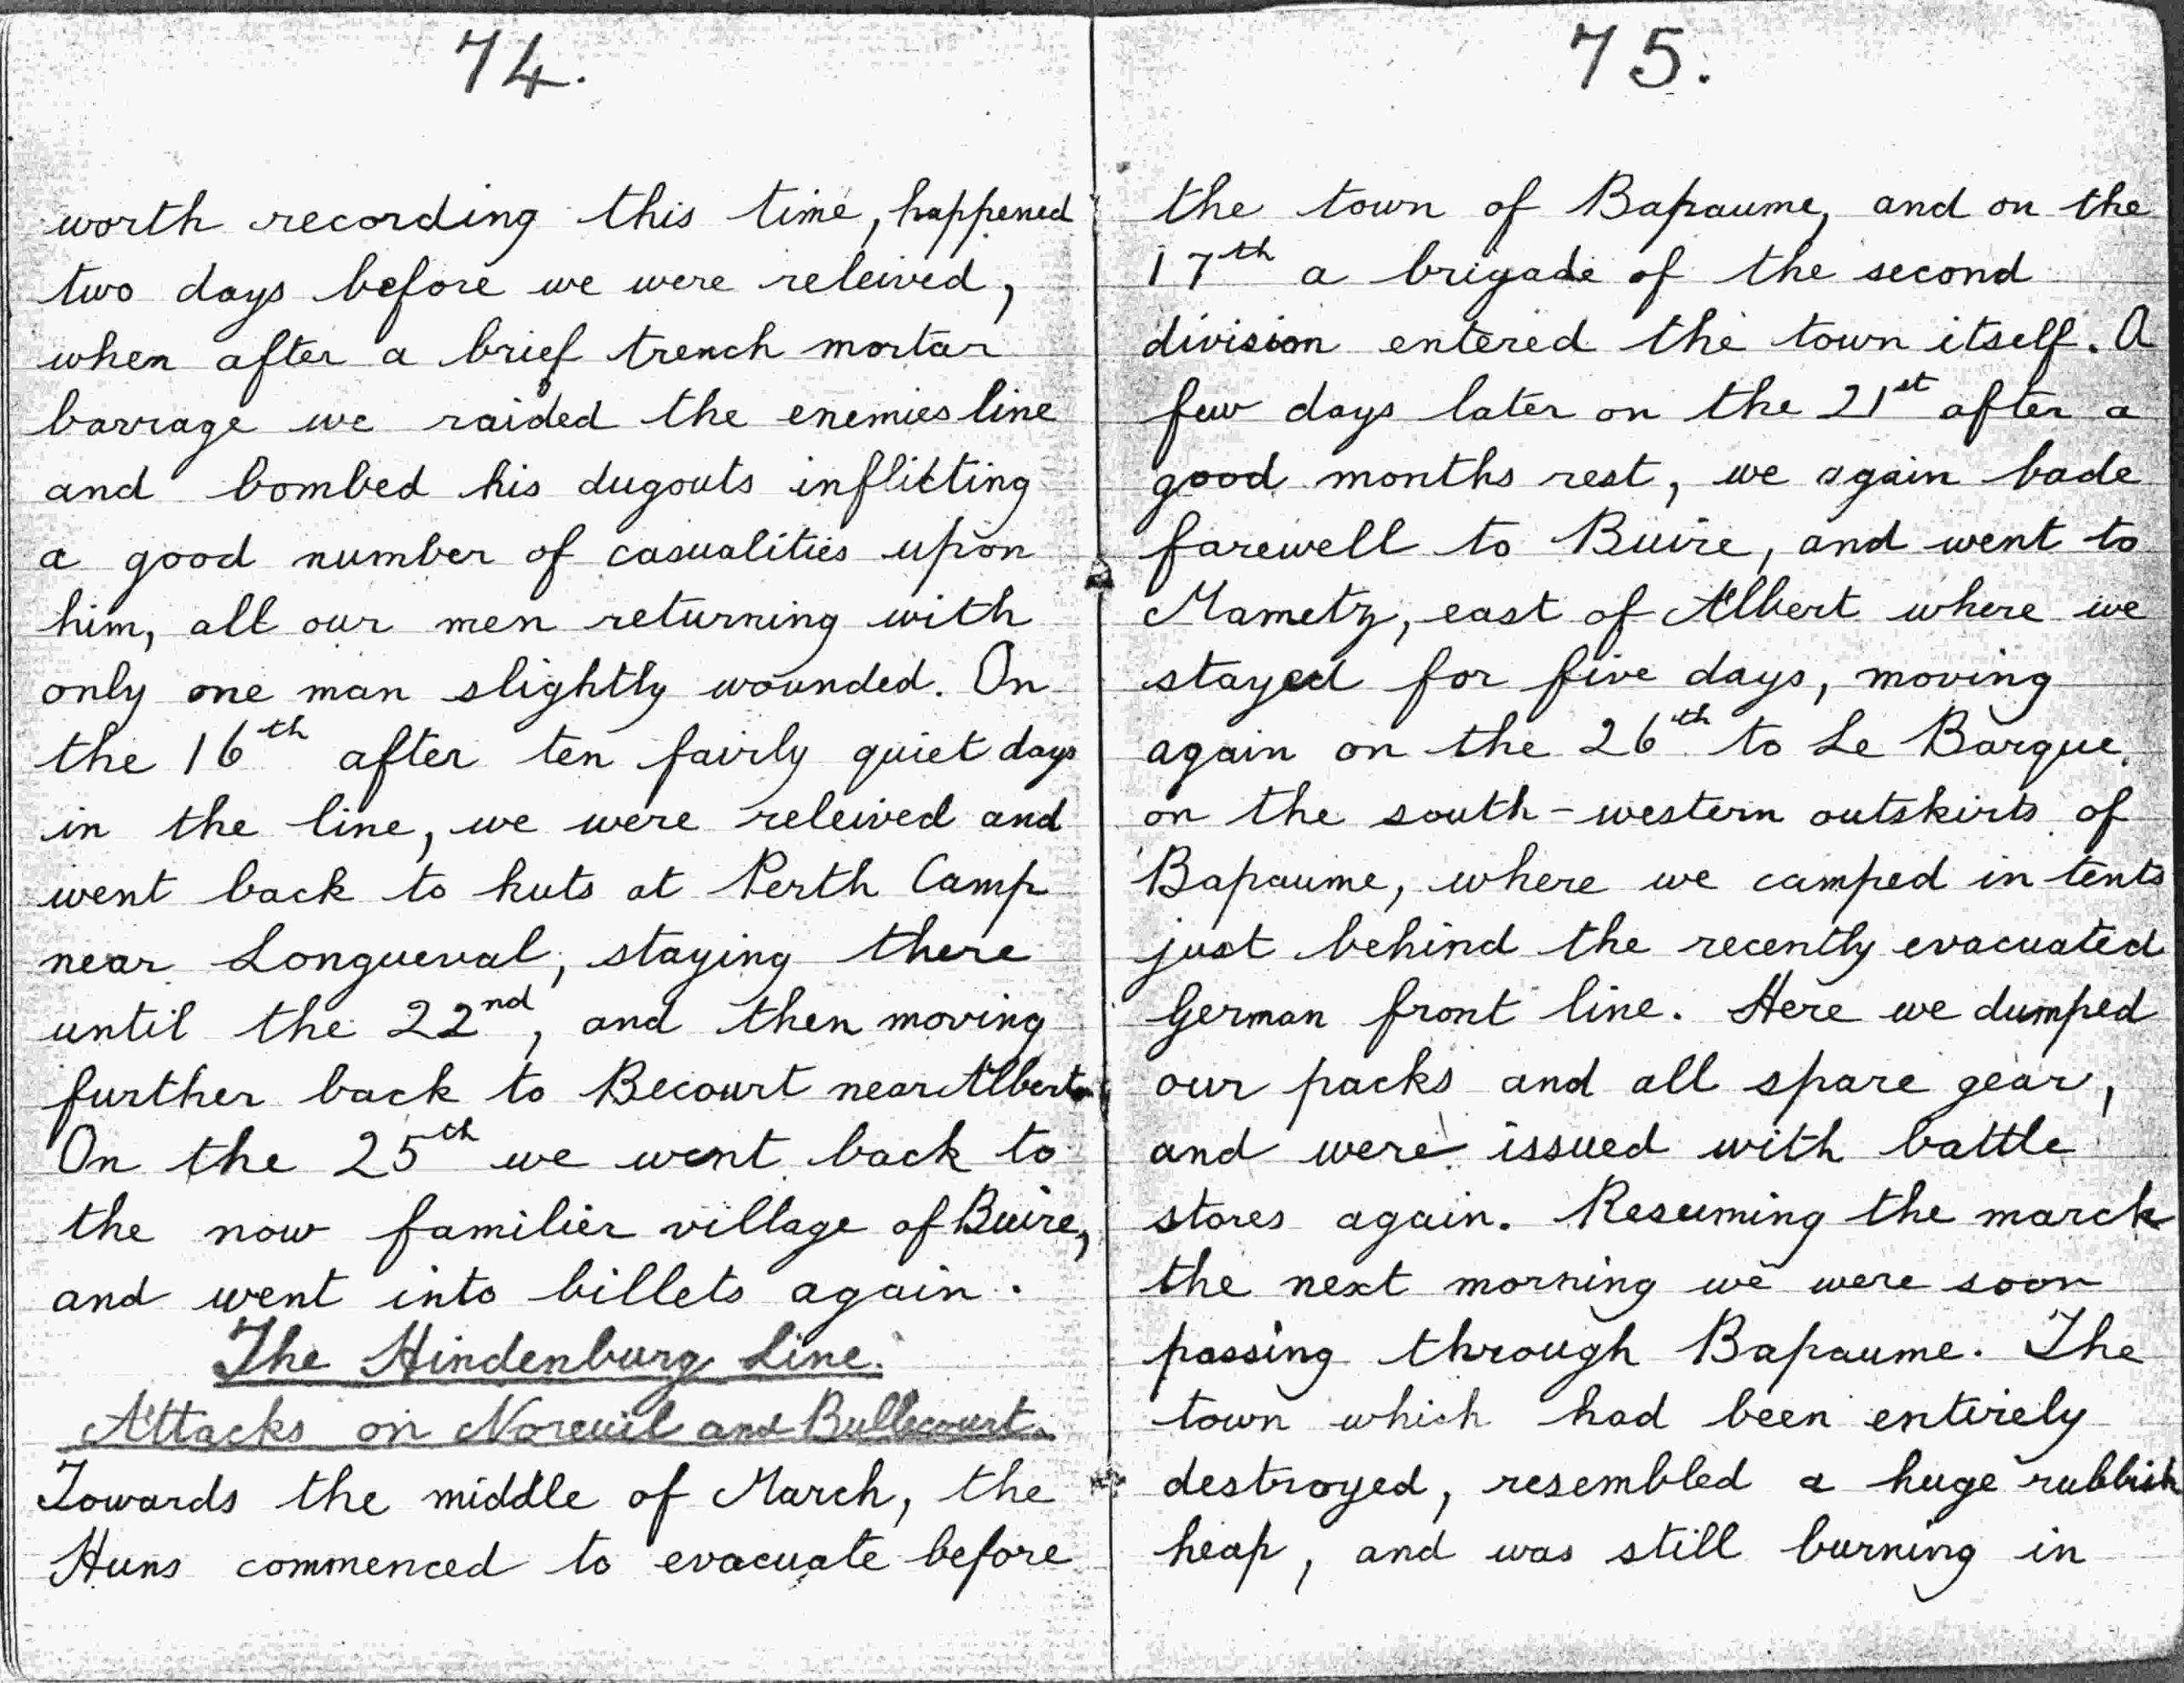 74.
worth recording this time, happened
two days before we were releived,
when after a brief trench mortar
barrage we raided the enemies line
and bombed his dugouts inflicting
a good number of casualities upon
him, all our men returning with
only one man slightly wounded. On
the 16th after ten fairly quiet days
in the line, we were releived and
went back to huts at Perth Camp
near Longueval, staying there
until the 22nd, and then moving
further back to Becourt near Albert.
On the 25th we went back to
the now familier village of Buire,
and went into billets again.
The Hindenburg Line.
Attacks on Noreuil and Bullecourt.
Towards the middle of March, the
Huns commenced to evacuate before
75.
the town of Bapaume, and on the
17th a brigade of the second
division entered the town itself. A
few days later on the 21st after a
good months rest, we again bade
farewell to Buire, and went to
Mametz, east of Albert where we
stayed for five days, moving
again on the 26th to Le Barque.
on the south-western outskirts of
Bapaume, where we camped in tents
just behind the recently evacuated
German front line. Here we dumped
our packs and all spare gear,
and were issued with battle
stores again. Resuming the march
the next morning we were soon
passing through Bapaume. The
town which had been entirely
destroyed, resembled a huge rubbish
heap, and was still burning in